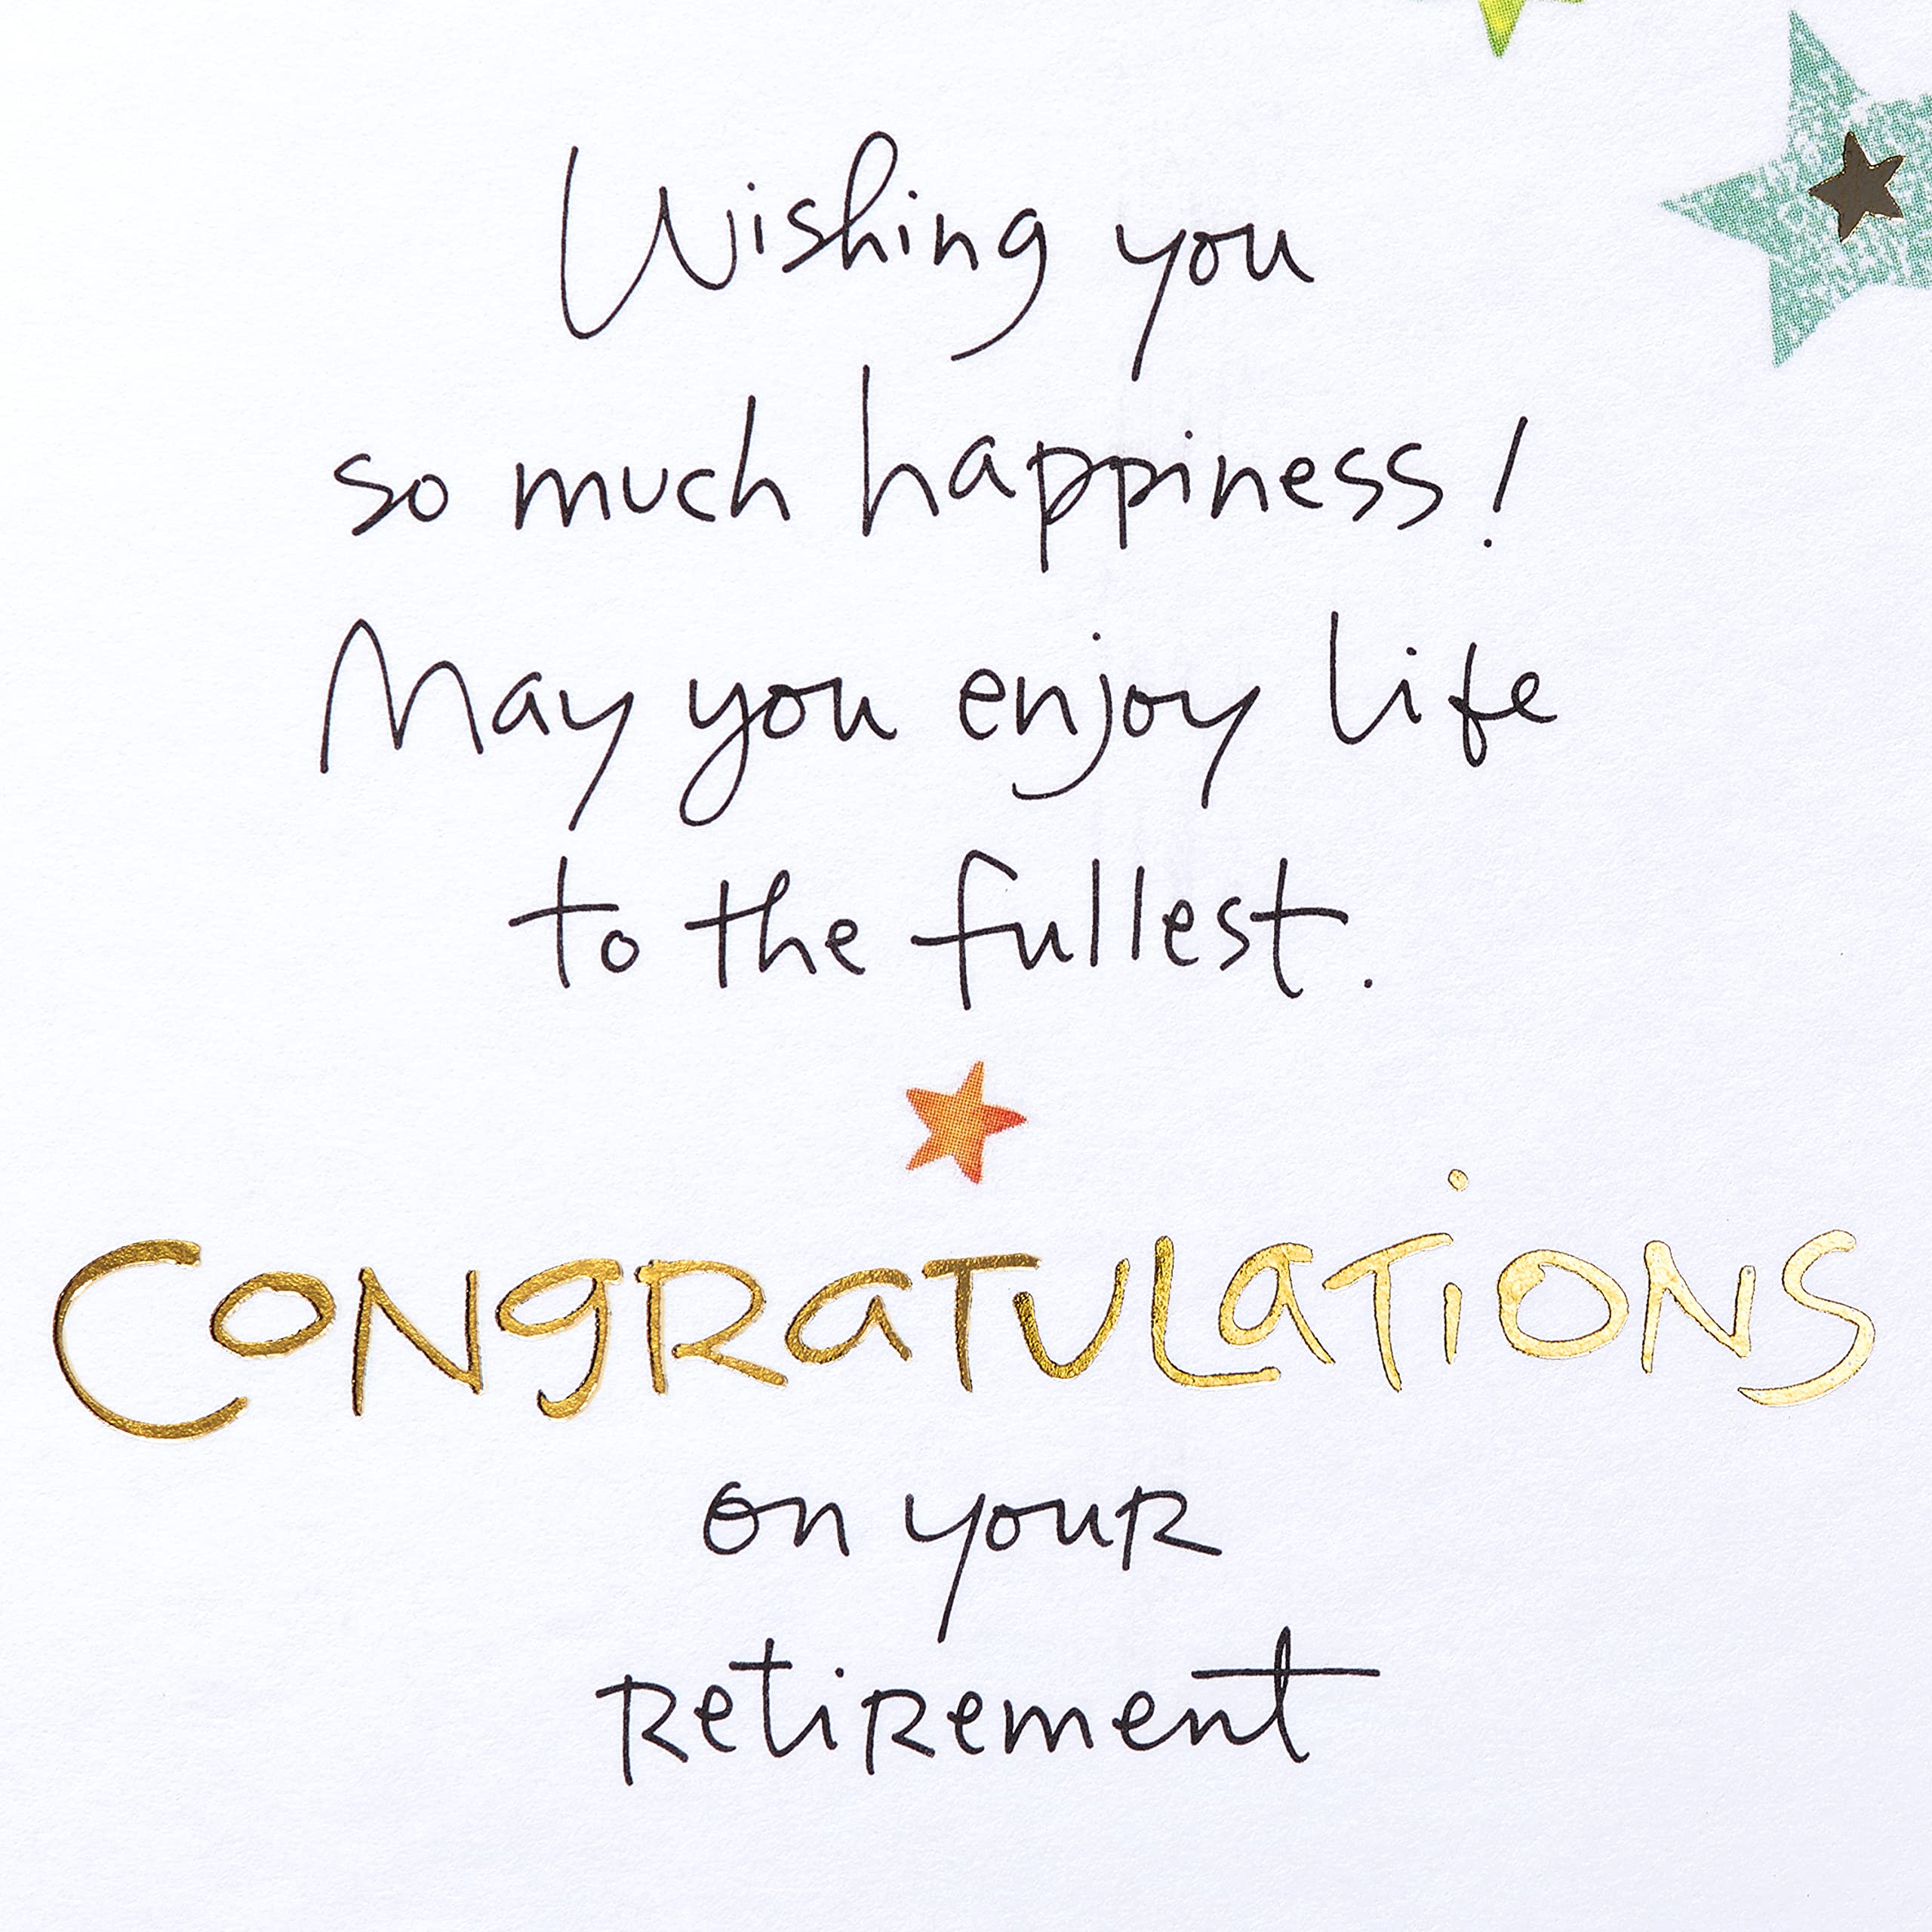 Wishing you
so much happiness!
May you enjoy life
to the fullest.
CONGRATULATiONS
on youR
RetiRement